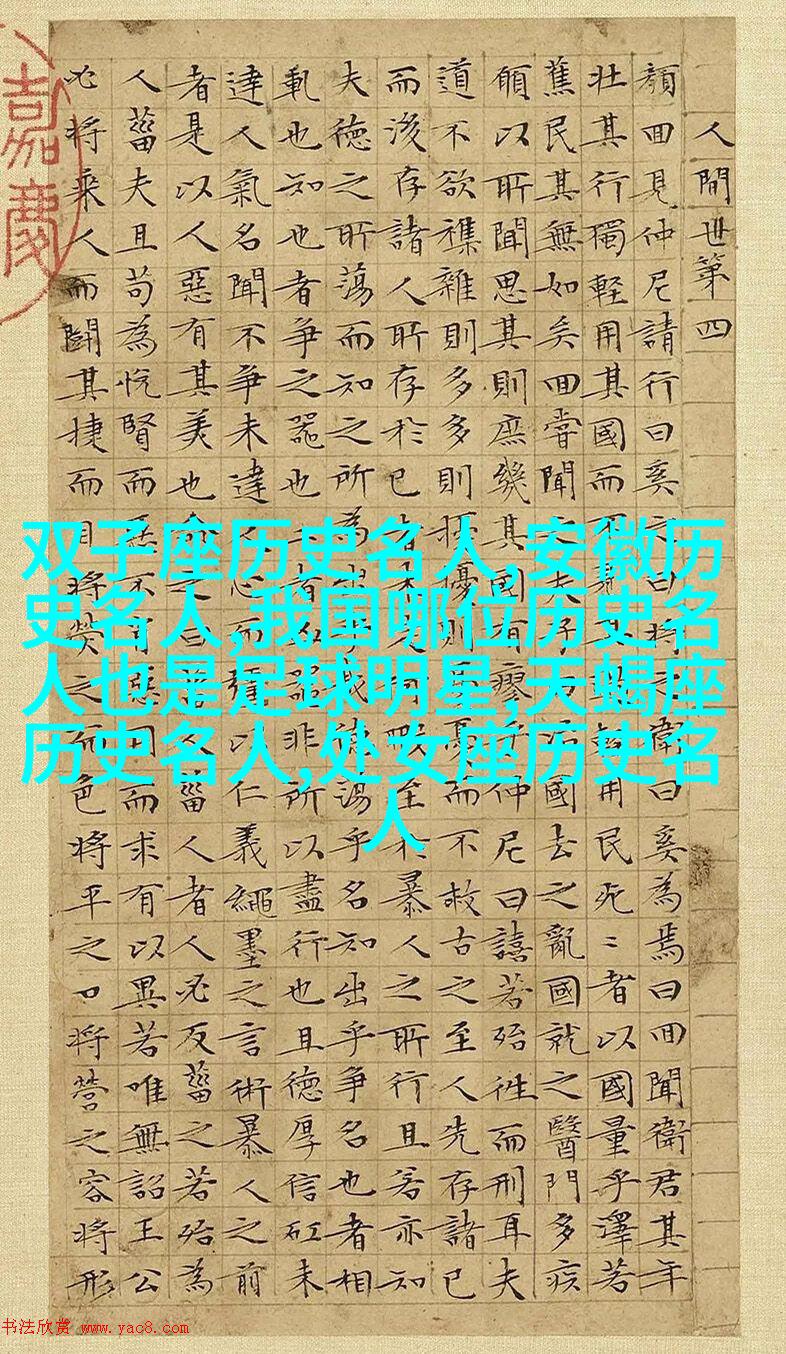 人間世第四
顏回見仲尼請行曰奚之曰將之衛曰奚為焉曰回聞衛君其年
壯其行獨輕用其國而不其輕用民死〻者以國量乎澤若
蕉民其無如矣回嘗聞之夫子曰治國去之亂國就之醫門多疾
願以所聞思其則庶幾其國有瘳乎仲尼曰譆若殆往而刑耳夫
道不欲襍雜則多多則擾擾則憂憂而不救古之至人先存諸己
而後存諸人所存於己者未定何暇至於暴人之所行且若亦知
夫德之所蕩而知之所為出乎哉德蕩乎名知出乎爭名也者相
軋也知也者爭之器也二者凶器非所以盡行也且德厚信矼未
達人氣名聞不爭未達人心而彊以仁義繩墨之言術暴人之前
者是以人惡有其美也命之曰菑人菑人者人必反菑之若殆為
人菑夫且苟為悅賢而惡不肖惡用而求有以異若唯無詔王公
必將乘人而鬪其捷而目將熒之而色將平之口將營之容將形
嘉慶
双子座历史名人,安徽历
史名人,我国哪位历史名
人也是足球明星,天蝎座
历史名人,处女座历史名
人
书法欣赏 www.yac8.com